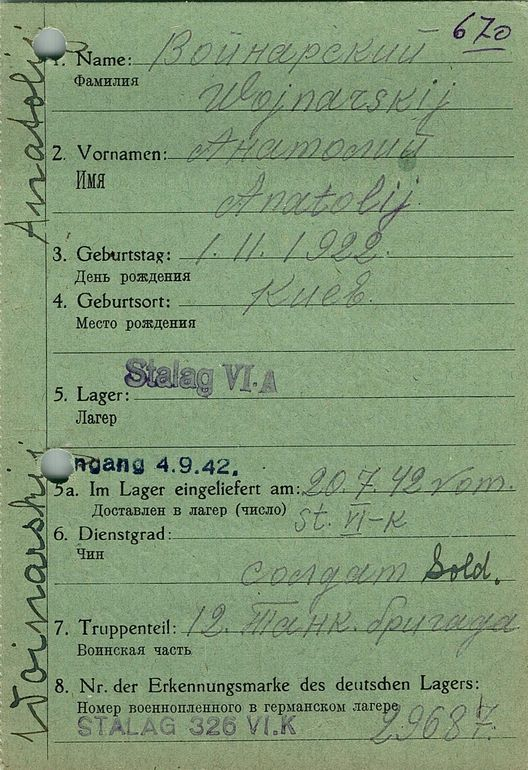 670
1. Name: Войнарский
Фамилия
Wojnarskij
2. Vornamen: Анатолий
Имя
Anatolij
3. Geburtstag: 1.11.1922.
День рождения
4. Geburtsort: Киев.
Место рождения
Stalag VI A
5. Lager:
Лагерь
ngang 4.9.42.
5a. Im Lager eingeliefert am: 20.7.42 vom.
Доставлен в лагерь (число) St. VI-K
6. Dienstgrad:
Чин
солдат Sold.
7. Truppenteil: 12. Танк. бригада
Воинская часть
8. Nr. der Erkennungsmarke des deutschen Lagers:
Номер военнопленного в германском лагере
STALAG 326 VI.K 29687.
Woinarskij Anatolij